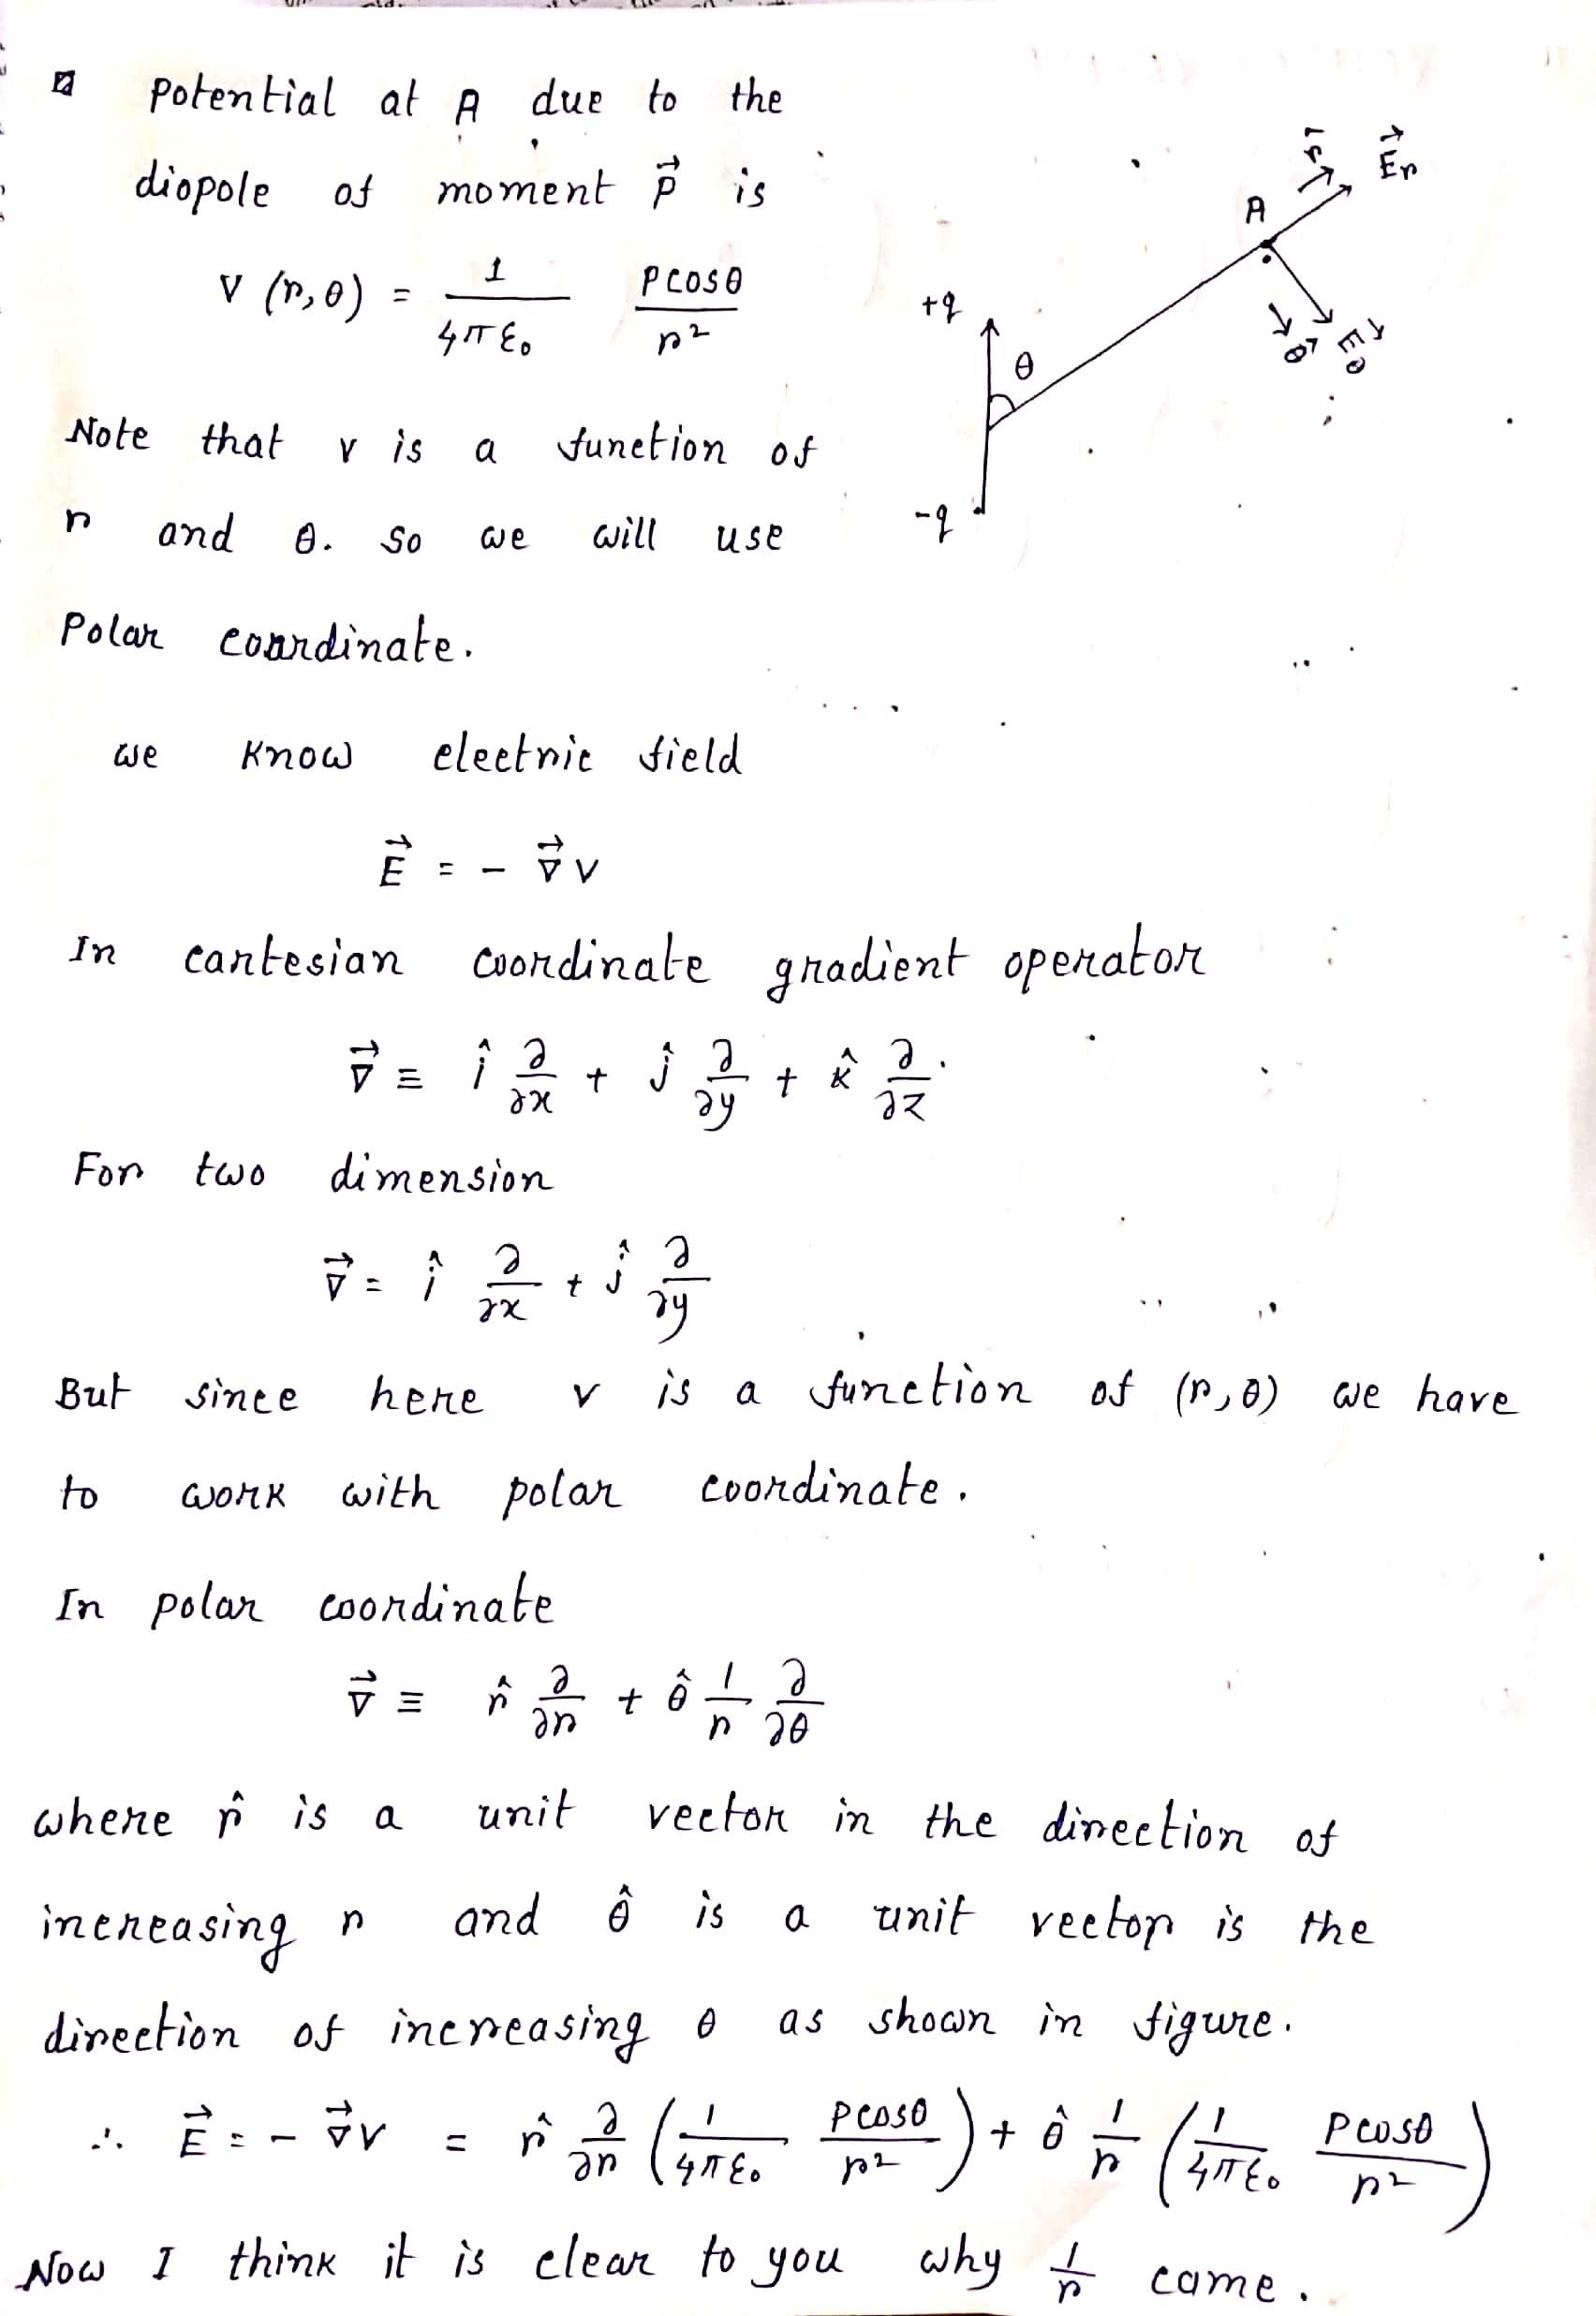 Potential at A due to the
diopole of moment \vec{P} is
V (r, θ) = \frac{1}{4πε₀} \frac{P cosθ}{r²}
+q
-q
θ
A
\vec{r}
\vec{E}r
\vec{θ}
\vec{E}θ
Note that v is a function of
r and θ. So we will use
Polar coordinate.
we know electric field
\vec{E} = - \vec{∇} V
In cartesian coordinate gradient operator
\vec{∇} ≡ î \frac{∂}{∂x} + ĵ \frac{∂}{∂y} + k̂ \frac{∂}{∂z}.
For two dimension
\vec{∇} = î \frac{∂}{∂x} + ĵ \frac{∂}{∂y}
But since here v is a function of (r, θ) we have
to work with polar coordinate.
In polar coordinate
\vec{∇} ≡ r̂ \frac{∂}{∂r} + θ̂ \frac{1}{r} \frac{∂}{∂θ}
where r̂ is a unit vector in the direction of
increasing r and θ̂ is a unit vector is the
direction of increasing θ as shown in figure.
∴ \vec{E} = - \vec{∇} V = r̂ \frac{∂}{∂r} ( \frac{1}{4πε₀} \frac{P cosθ}{r²} ) + θ̂ \frac{1}{r} ( \frac{1}{4πε₀} \frac{P cosθ}{r²} )
Now I think it is clear to you why \frac{1}{r} came.